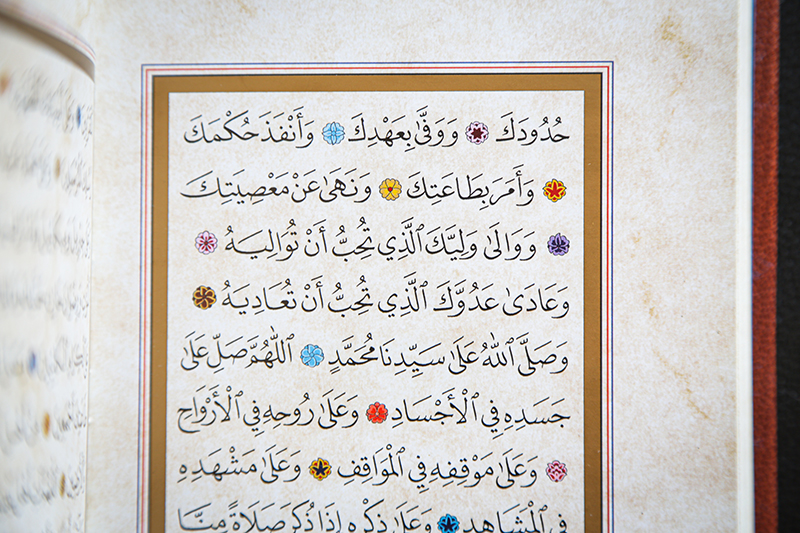 حُدُودَكَ وَوَفَّىٰ بِعَهْدِكَ وَأَنْفَذَ حُكْمَكَ
وَأَمَرَ بِطَاعَتِكَ وَنَهَىٰ عَنْ مَعْصِيَتِكَ
وَوَالَىٰ وَلِيَّكَ ٱلَّذِي تُحِبُّ أَنْ تُوَالِيَهُ
وَعَادَىٰ عَدُوَّكَ ٱلَّذِي تُحِبُّ أَنْ تُعَادِيَهُ
وَصَلَّى ٱللّٰهُ عَلَىٰ سَيِّدِنَا مُحَمَّدٍ ٱللّٰهُمَّ صَلِّ عَلَىٰ
جَسَدِهِ فِي ٱلْأَجْسَادِ وَعَلَىٰ رُوحِهِ فِي ٱلْأَرْوَاحِ
وَعَلَىٰ مَوْقِفِهِ فِي ٱلْمَوَاقِفِ وَعَلَىٰ مَشْهَدِهِ
فِي ٱلْمَشَاهِدِ وَعَلَىٰ ذِكْرِهِ إِذَا ذُكِرَ صَلَاةً مِنَّا